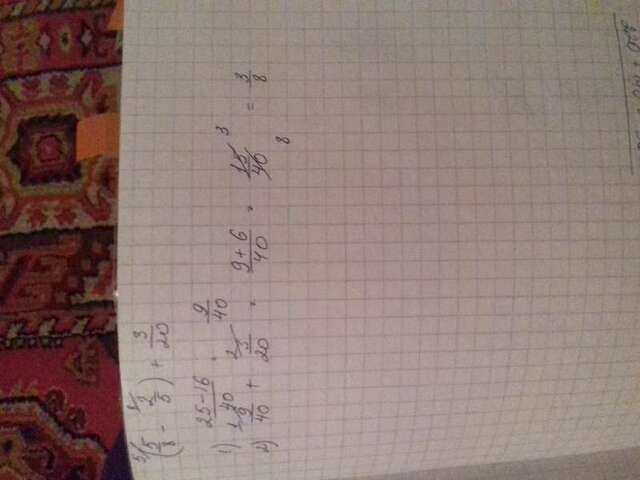 (⁵⟍5/8 - ⁸⟍2/5) + 3/20
1) (25-16)/40 = 9/40
2) ¹⟍9/40 + ²⟍3/20 = (9+6)/40 = 15/40 3 8 = 3/8